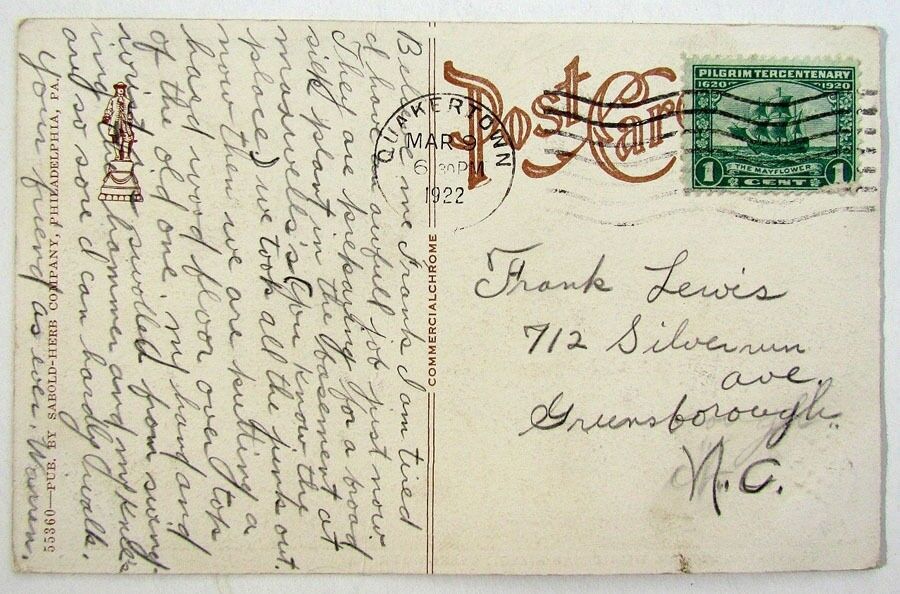 Believe me Frank I am tired
I have an awfull job just now.
They are preparing for a broad
silk plant in the basement at
(you know the
place) we took all the junk out.
now then we are putting a
hard wood floor over top
of the old one, my hand and
wrist swolled from swing-
ing the hammer and my knee's
are so sore I can hardly walk.
your friend as ever, Warren.
55360—PUB. BY SABOLD-HERB COMPANY, PHILADELPHIA, PA.
COMMERCIALCHROME
Post Card
QUAKERTOWN
MAR 9
6 30 PM
1922
PILGRIM TERCENTENARY
1620 1920
THE MAYFLOWER
1 CENT 1
Frank Lewis
712 Silverrun
ave.
Greensborough
N.C.